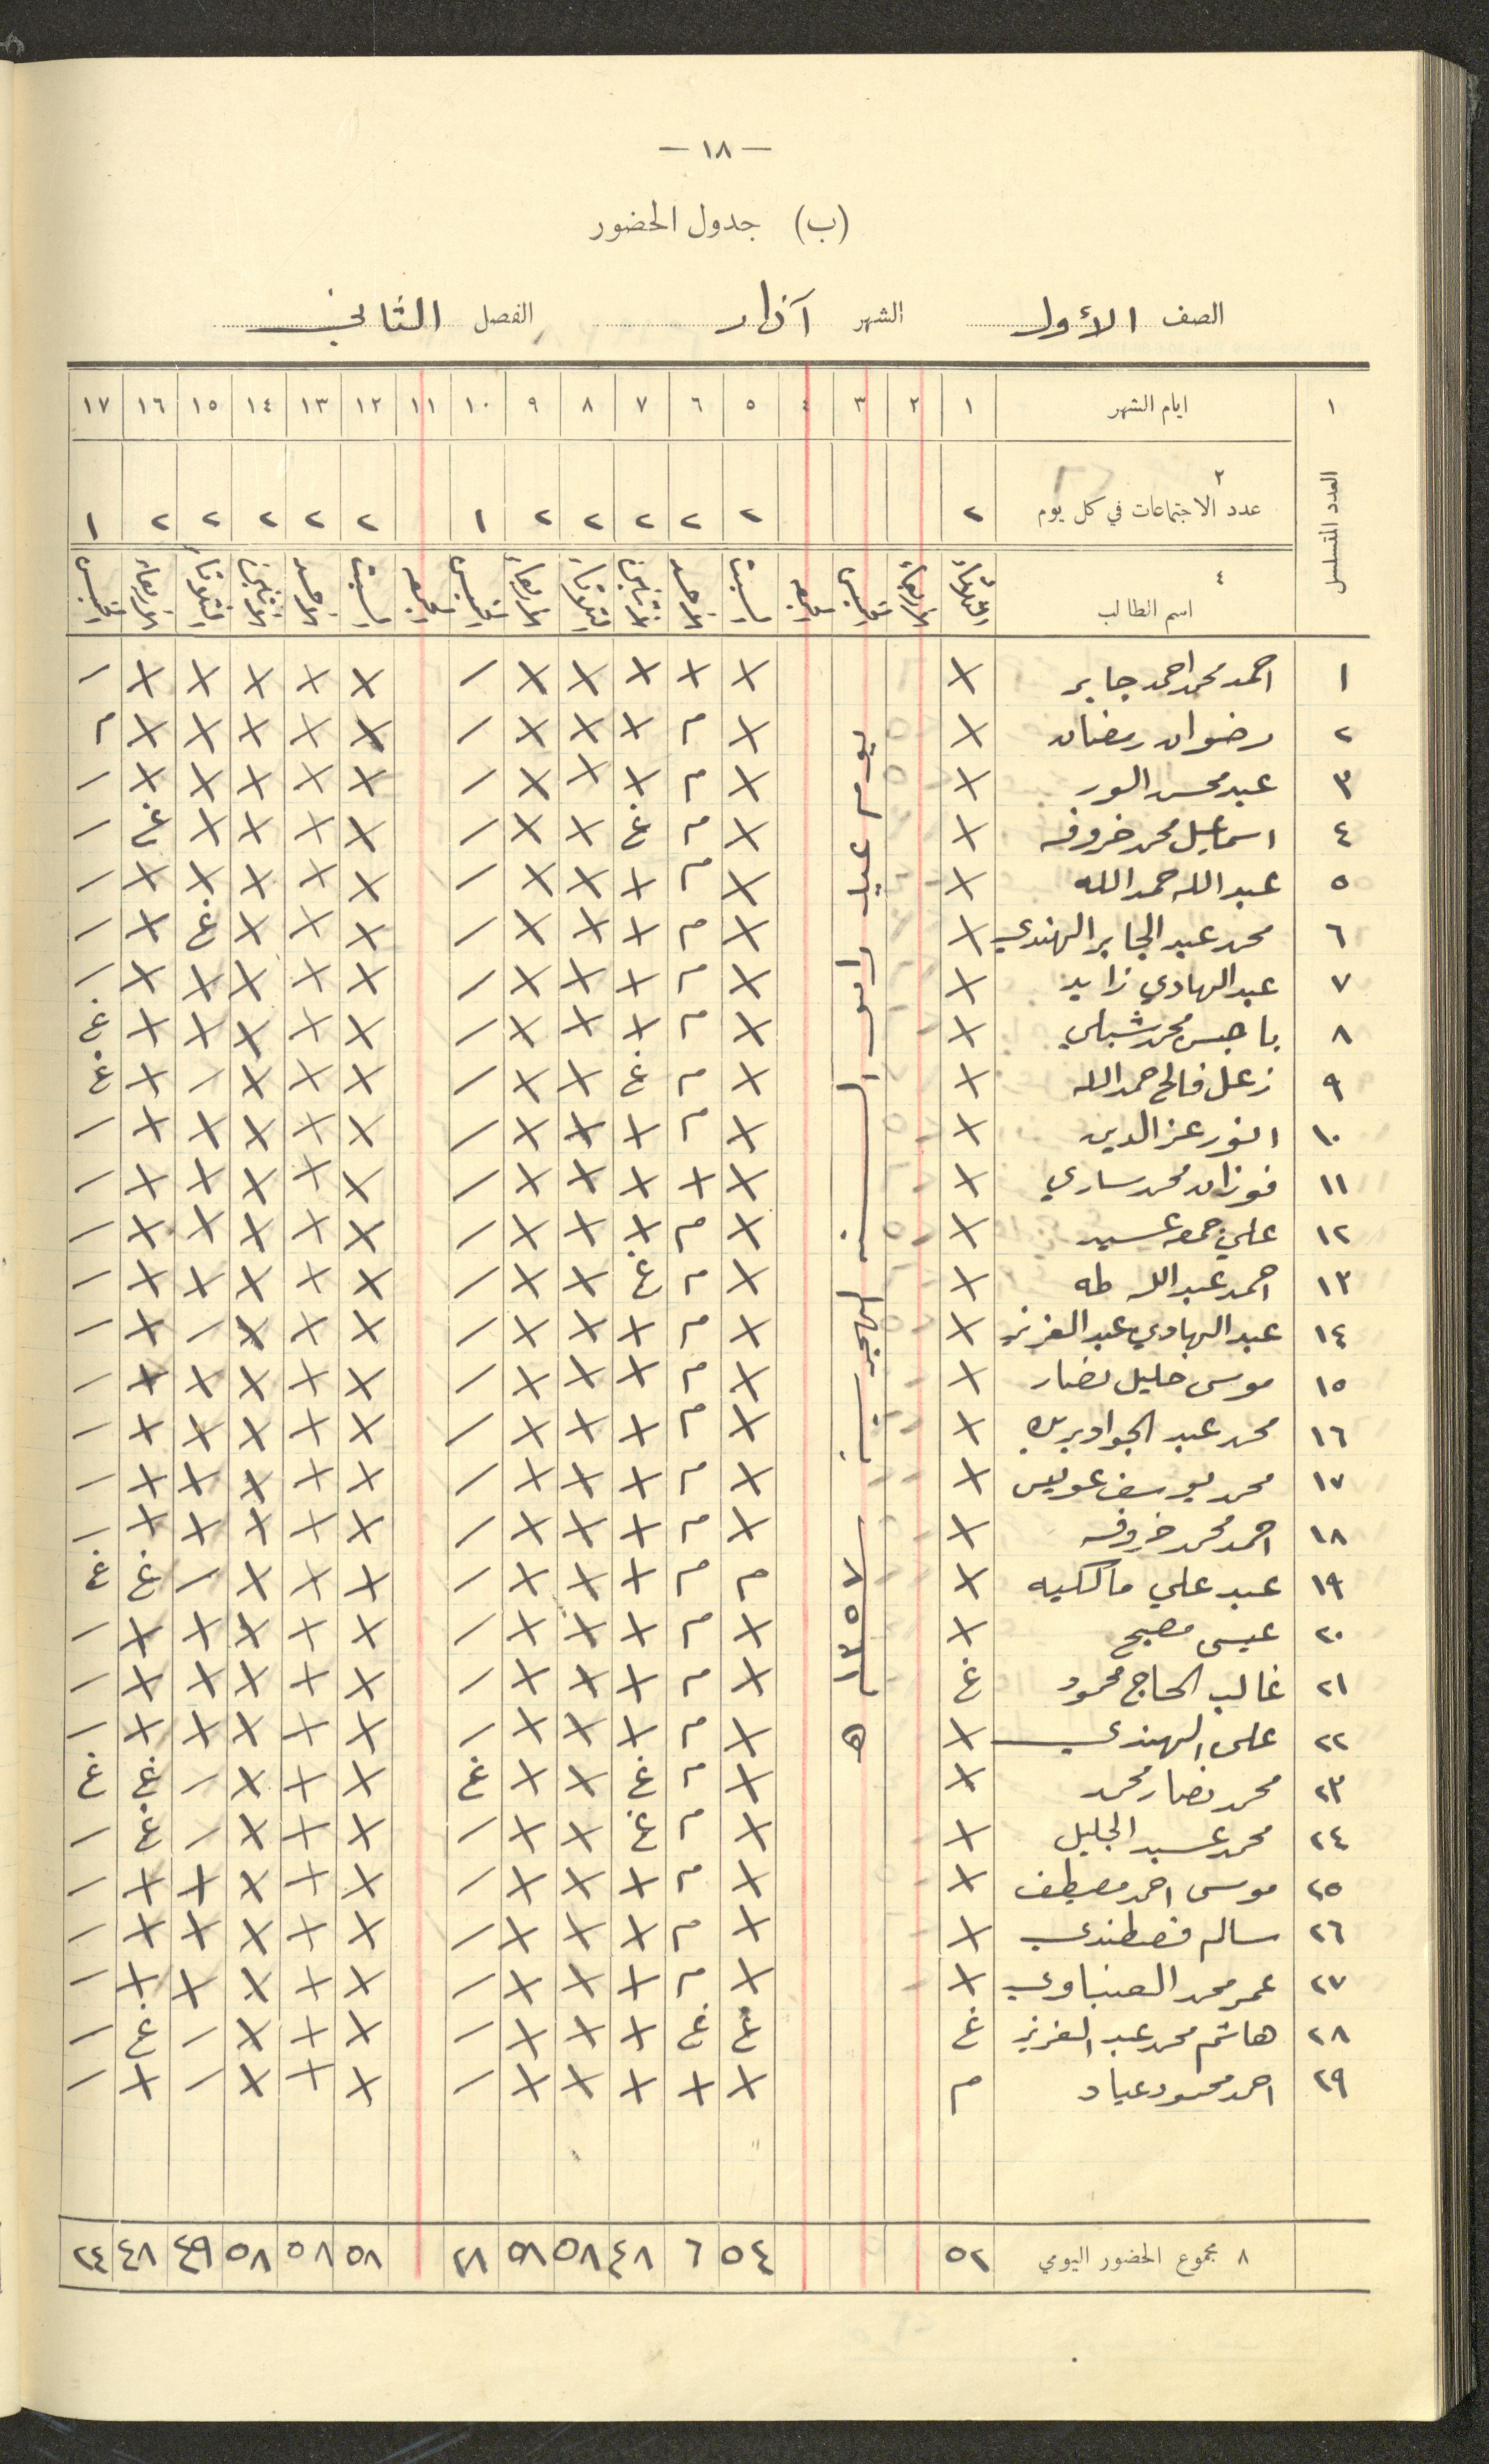 — ١٨ —
(ب) جدول الحضور
الصف الأول الشهر آذار الفصل الثاني
١ ايام الشهر ١ ٢ ٣ ٤ ٥ ٦ ٧ ٨ ٩ ١٠ ١١ ١٢ ١٣ ١٤ ١٥ ١٦ ١٧
العدد المتسلسل
٢ عدد الاجتماعات في كل يوم ٢ ٢ ٢ ٢ ٢ ٢ ١ ٢ ٢ ٢ ٢ ٢ ١
٤ اسم الطالب الثلاثاء الاربعاء الخميس الجمعه السبت الاحد الاثنين الثلاثاء الاربعاء الخميس الجمعه السبت الاحد الاثنين الثلاثاء الاربعاء الخميس
يوم عيد راس السنه الهجريه ١٣٥٧ ه
١ احمد محمد احمد جابر × × × × × × / × × × × × /
٢ رضوان رمضان × × م × × × / × × × × × م
٣ عبد محسن الور × × م × × × / × × × × × /
٤ اسماعيل محمد خروفه × × م غ × × / × × × × غ /
٥ عبد الله حمد الله × × م × × × / × × × × × /
٦ محمد عبد الجابر الهندي × × م × × × / × × × غ × /
٧ عبد الهادي زايد × × م × × × / × × × × × /
٨ باجس محمد شبلي × × م × × × / × × × × × غ
٩ زعل فالح حمد الله × × م غ × × / × × × / × غ
١٠ انور عز الدين × × م × × × / × × × × × /
١١ فوزان محمد ساري × × × × × × / × × × × × /
١٢ علي جمعه عسيد × × م × × × / × × × × × /
١٣ احمد عبد الله طه × × م غ × × / × × × × × /
١٤ عبد الهادي عبد العزيز × × م × × × / × × × / × /
١٥ موسى خليل نصار × × م × × × / × × × × × /
١٦ محمد عبد الجواد × × م × × × / × × × × × /
١٧ محمد يوسف عويس × × م × × × / × × × × × /
١٨ احمد محمد خروفه × × م × × × / × × × × × /
١٩ عبد علي مالكيه × م م × × × / × × × / غ غ
٢٠ عيسى مصبح × × م × × × / × × × × × /
٢١ غالب الحاج محمود غ × م × × × / × × × × × /
٢٢ علي الهندي × × م × × × / × × × × × /
٢٣ محمد نصار محمد × × م غ × × غ × × × / غ غ
٢٤ محمد عبد الجليل × × م غ × × / × × × / غ /
٢٥ موسى احمد مصيطف × × م × × × / × × × × × /
٢٦ سالم قصطندي × × م × × × / × × × × × /
٢٧ عمر محمد الصنباوي × × م × × × / × × × × × /
٢٨ هاشم محمد عبد العزيز غ غ غ × × × / × × × / غ /
٢٩ احمد محمود عياد م × × × × × / × × × / × /
٨ مجموع الحضور اليومي ٥٢ ٥٤ ٦ ٤٨ ٥٨ ٥٨ ٢٨ ٥٨ ٥٨ ٥٨ ٤٩ ٤٨ ٢٤